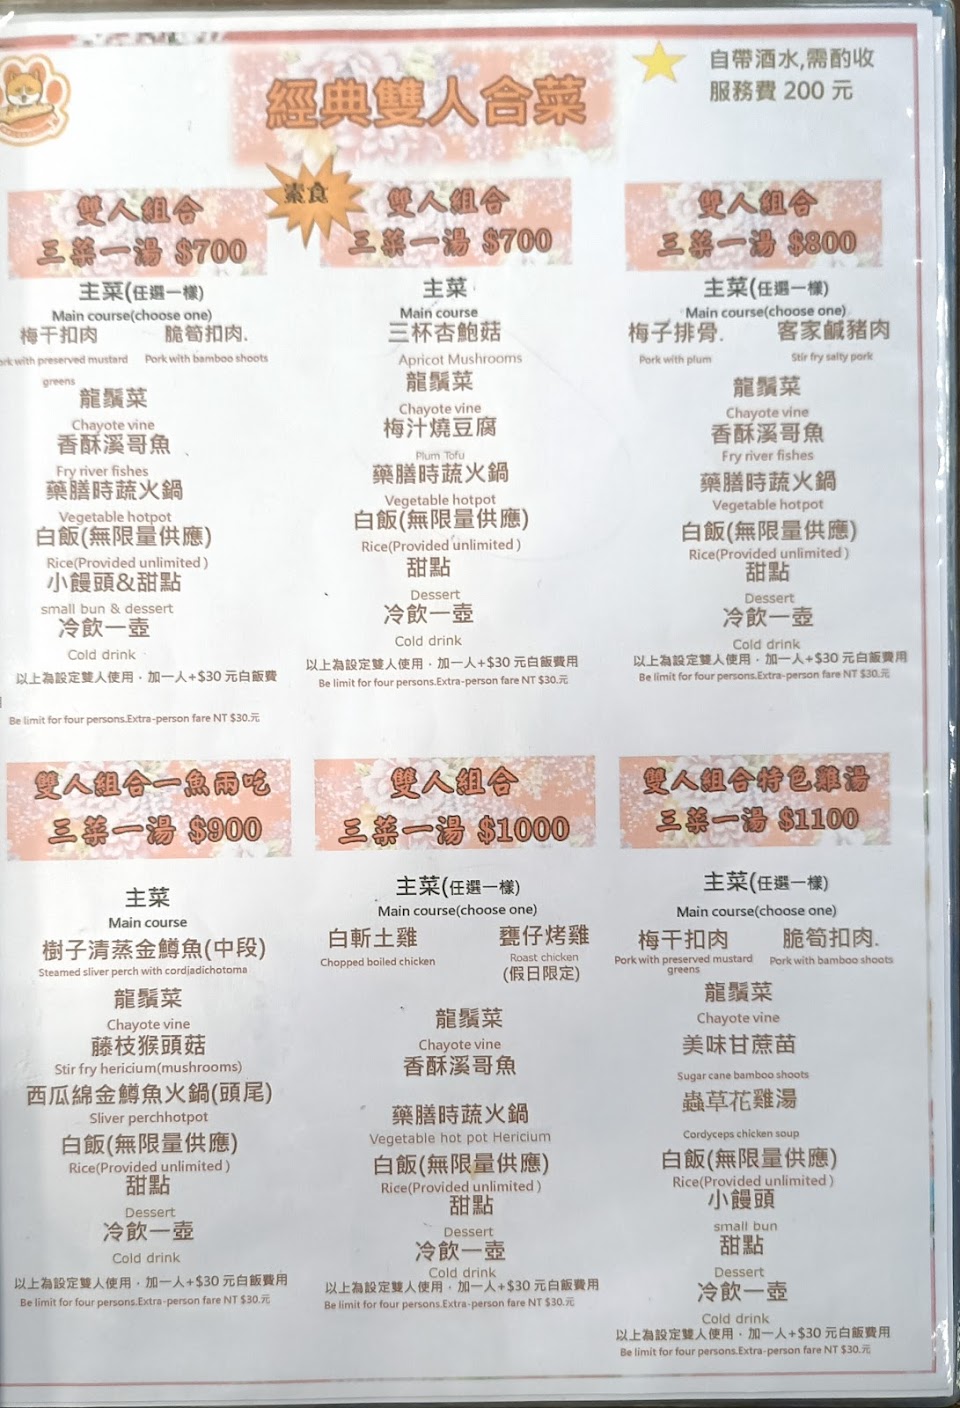 經典雙人合菜
自帶酒水,需酌收
服務費 200 元
雙人組合
三菜一湯 $700
主菜(任選一樣)
Main course(choose one)
梅干扣肉 脆筍扣肉.
Pork with preserved mustard Pork with bamboo shoots
greens
龍鬚菜
Chayote vine
香酥溪哥魚
Fry river fishes
藥膳時蔬火鍋
Vegetable hotpot
白飯(無限量供應)
Rice(Provided unlimited )
小饅頭&甜點
small bun & dessert
冷飲一壺
Cold drink
以上為設定雙人使用．加一人+$30 元白飯費
Be limit for four persons.Extra-person fare NT $30.元
素食
雙人組合
三菜一湯 $700
主菜
Main course
三杯杏鮑菇
Apricot Mushrooms
龍鬚菜
Chayote vine
梅汁燒豆腐
Plum Tofu
藥膳時蔬火鍋
Vegetable hotpot
白飯(無限量供應)
Rice(Provided unlimited )
甜點
Dessert
冷飲一壺
Cold drink
以上為設定雙人使用．加一人+$30 元白飯費用
Be limit for four persons.Extra-person fare NT $30.元
雙人組合
三菜一湯 $800
主菜(任選一樣)
Main course(choose one)
梅子排骨. 客家鹹豬肉
Pork with plum Stir fry salty pork
龍鬚菜
Chayote vine
香酥溪哥魚
Fry river fishes
藥膳時蔬火鍋
Vegetable hotpot
白飯(無限量供應)
Rice(Provided unlimited )
甜點
Dessert
冷飲一壺
Cold drink
以上為設定雙人使用．加一人+$30 元白飯費用
Be limit for four persons.Extra-person fare NT $30.元
雙人組合一魚兩吃
三菜一湯 $900
主菜
Main course
樹子清蒸金鱒魚(中段)
Steamed sliver perch with cordiadichotoma
龍鬚菜
Chayote vine
藤枝猴頭菇
Stir fry hericium(mushrooms)
西瓜綿金鱒魚火鍋(頭尾)
Sliver perchhotpot
白飯(無限量供應)
Rice(Provided unlimited )
甜點
Dessert
冷飲一壺
Cold drink
以上為設定雙人使用．加一人+$30 元白飯費用
Be limit for four persons.Extra-person fare NT $30.元
雙人組合
三菜一湯 $1000
主菜(任選一樣)
Main course(choose one)
白斬土雞 甕仔烤雞
Chopped boiled chicken Roast chicken
(假日限定)
龍鬚菜
Chayote vine
香酥溪哥魚
藥膳時蔬火鍋
Vegetable hot pot Hericium
白飯(無限量供應)
Rice(Provided unlimited )
甜點
Dessert
冷飲一壺
Cold drink
以上為設定雙人使用．加一人+$30 元白飯費用
Be limit for four persons.Extra-person fare NT $30.元
雙人組合特色雞湯
三菜一湯 $1100
主菜(任選一樣)
Main course(choose one)
梅干扣肉 脆筍扣肉.
Pork with preserved mustard Pork with bamboo shoots
greens
龍鬚菜
Chayote vine
美味甘蔗苗
Sugar cane bamboo shoots
蟲草花雞湯
Cordyceps chicken soup
白飯(無限量供應)
Rice(Provided unlimited )
小饅頭
small bun
甜點
Dessert
冷飲一壺
Cold drink
以上為設定雙人使用．加一人+$30 元白飯費用
Be limit for four persons.Extra-person fare NT $30.元